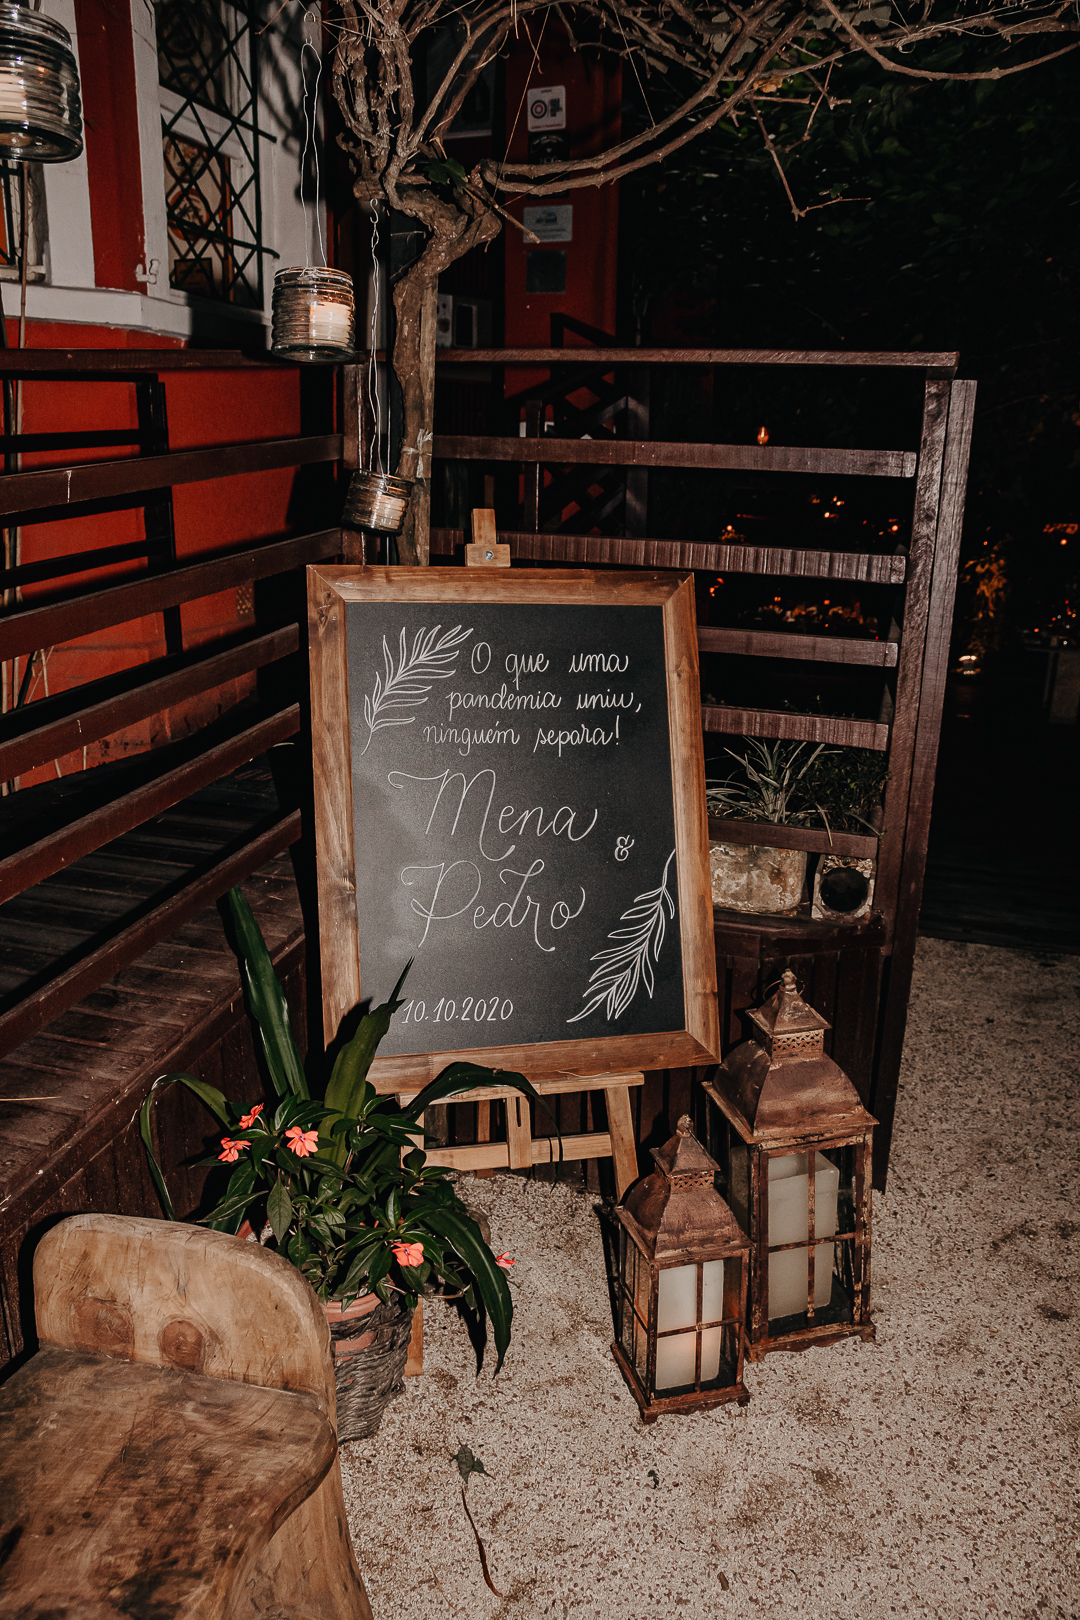 O que uma
pandemia uniu,
ninguém separa!
Mena
&
Pedro
10.10.2020